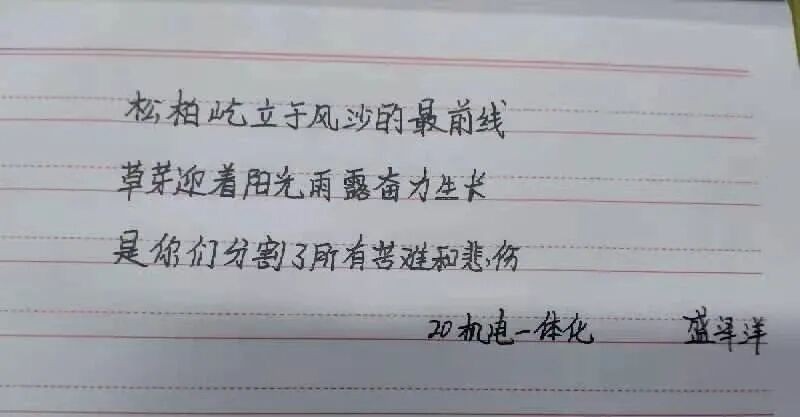 松柏屹立于风沙的最前线
草芽迎着阳光雨露奋力生长
是你们分割了所有苦难和悲伤
20机电一体化 盛泽洋